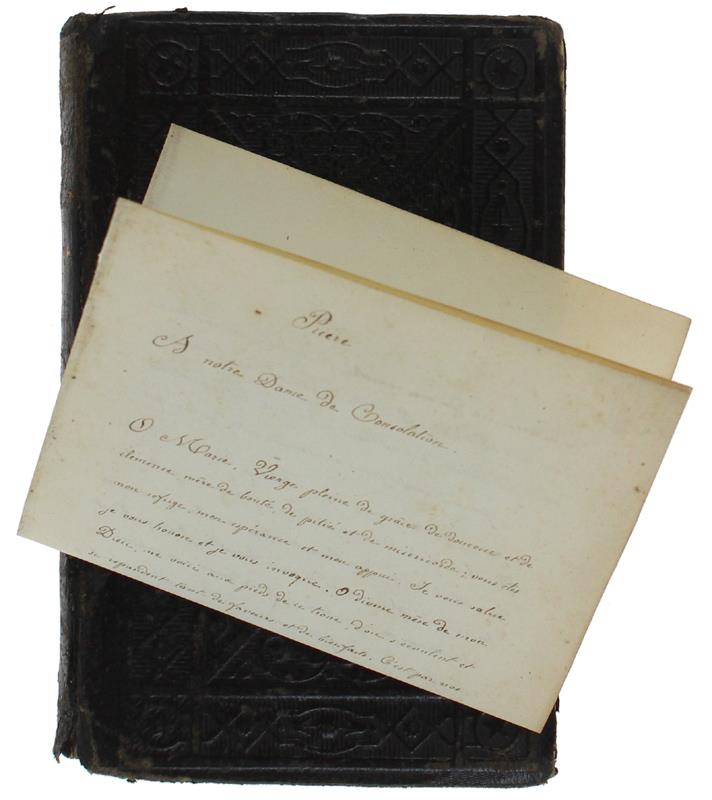 Priere
A notre Dame de Consolation.
O Marie, Vierge pleine de grâce de douceur et de
clemence mère de bonté, de pitié et de misericorde; vous êtes
mon refuge, mon espérance et mon appui. Je vous salue
je vous honore et je vous invoque. O divine mère de mon
Dieu, me voici aux pieds de ce trone d'où s'ecoulent et
se repandent tant de faveurs et de bienfaits. C'est par vos